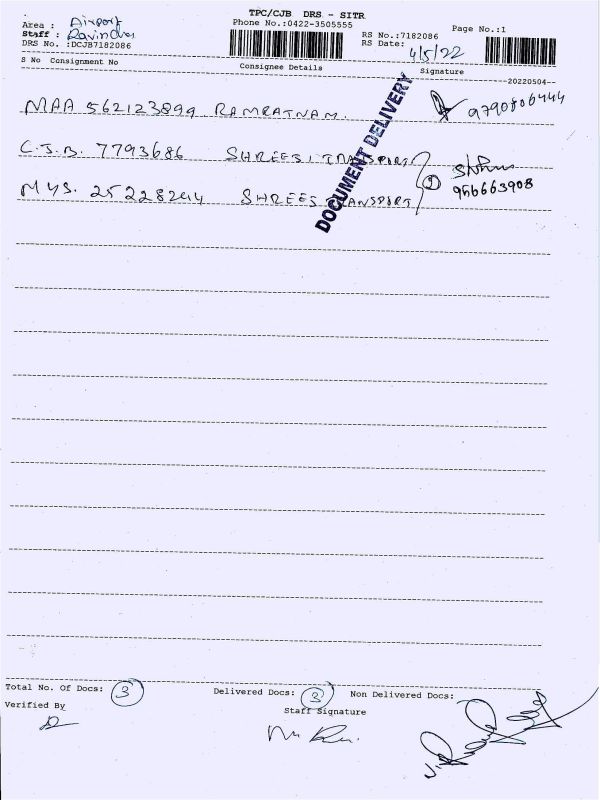 TPC/CJB DRS - SITR
Area : Airport
Phone No.:0422-3505555
Page No.:1
Staff : Ravindran
RS No.:7182086
DRS No. :DCJB7182086
RS Date: 4/5/22
S No Consignment No
Consignee Details
Signature
20220504
MAA 562123899 RAMRATNAM.
9790806444
C.J.B. 7793686 SHREESI TRANSPORT
MYS. 25228244 SHREES TRANSPORT
2
956663908
DOCUMENT DELIVERY
Total No. Of Docs: 3
Delivered Docs: 3
Non Delivered Docs:
Verified By
Staff Signature